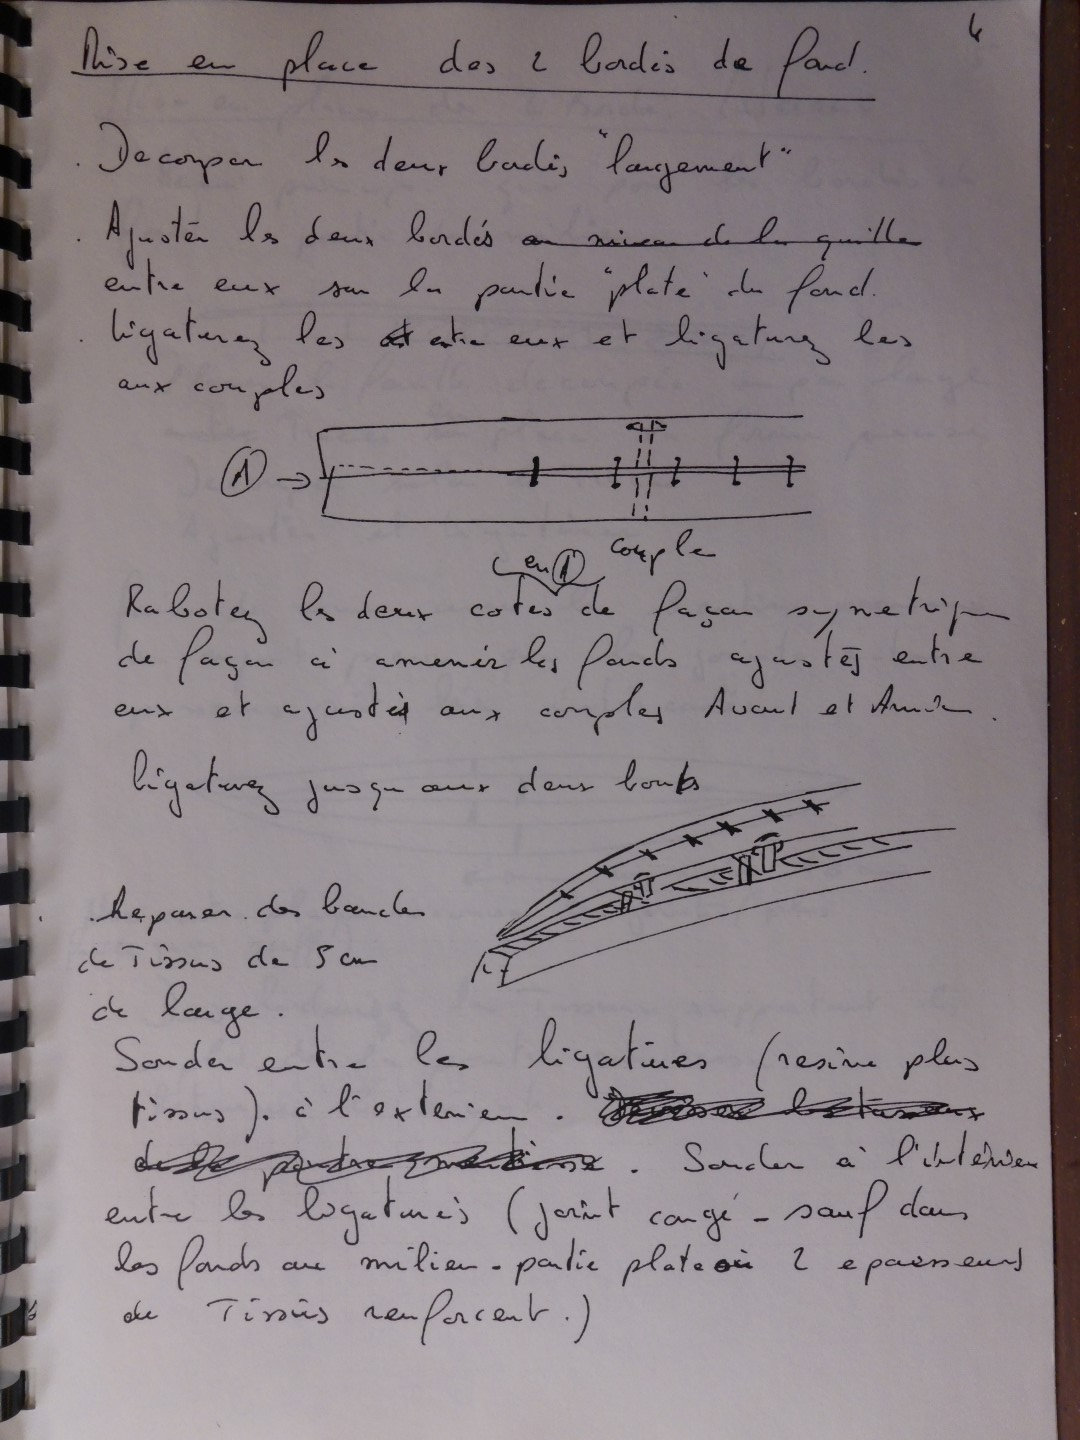 6
Mise en place des 2 bordés de fond.
. Decouper les deux bordés "largement"
. Ajuster les deux bordés au niveau de la quille
entre eux sur la partie "plate" du fond.
. ligaturez les entre eux et ligaturez les
aux couples
A →
couple
en A
Rabotez les deux cotés de façon symetrique
de façon à amener les fonds ajustés entre
eux et ajustés aux couples Avant et Arrière.
ligaturez jusqu aux deux bouts
. Preparer des bandes
de Tissus de 5 cm
de large.
Souder entre les ligatures (resine plus
tissus). à l'exterieur.
. Souder à l'intérieur
entre les ligatures (joint congé - sauf dans
les fonds au milieu - partie plate où 2 epaisseurs
de Tissus renforcent.)